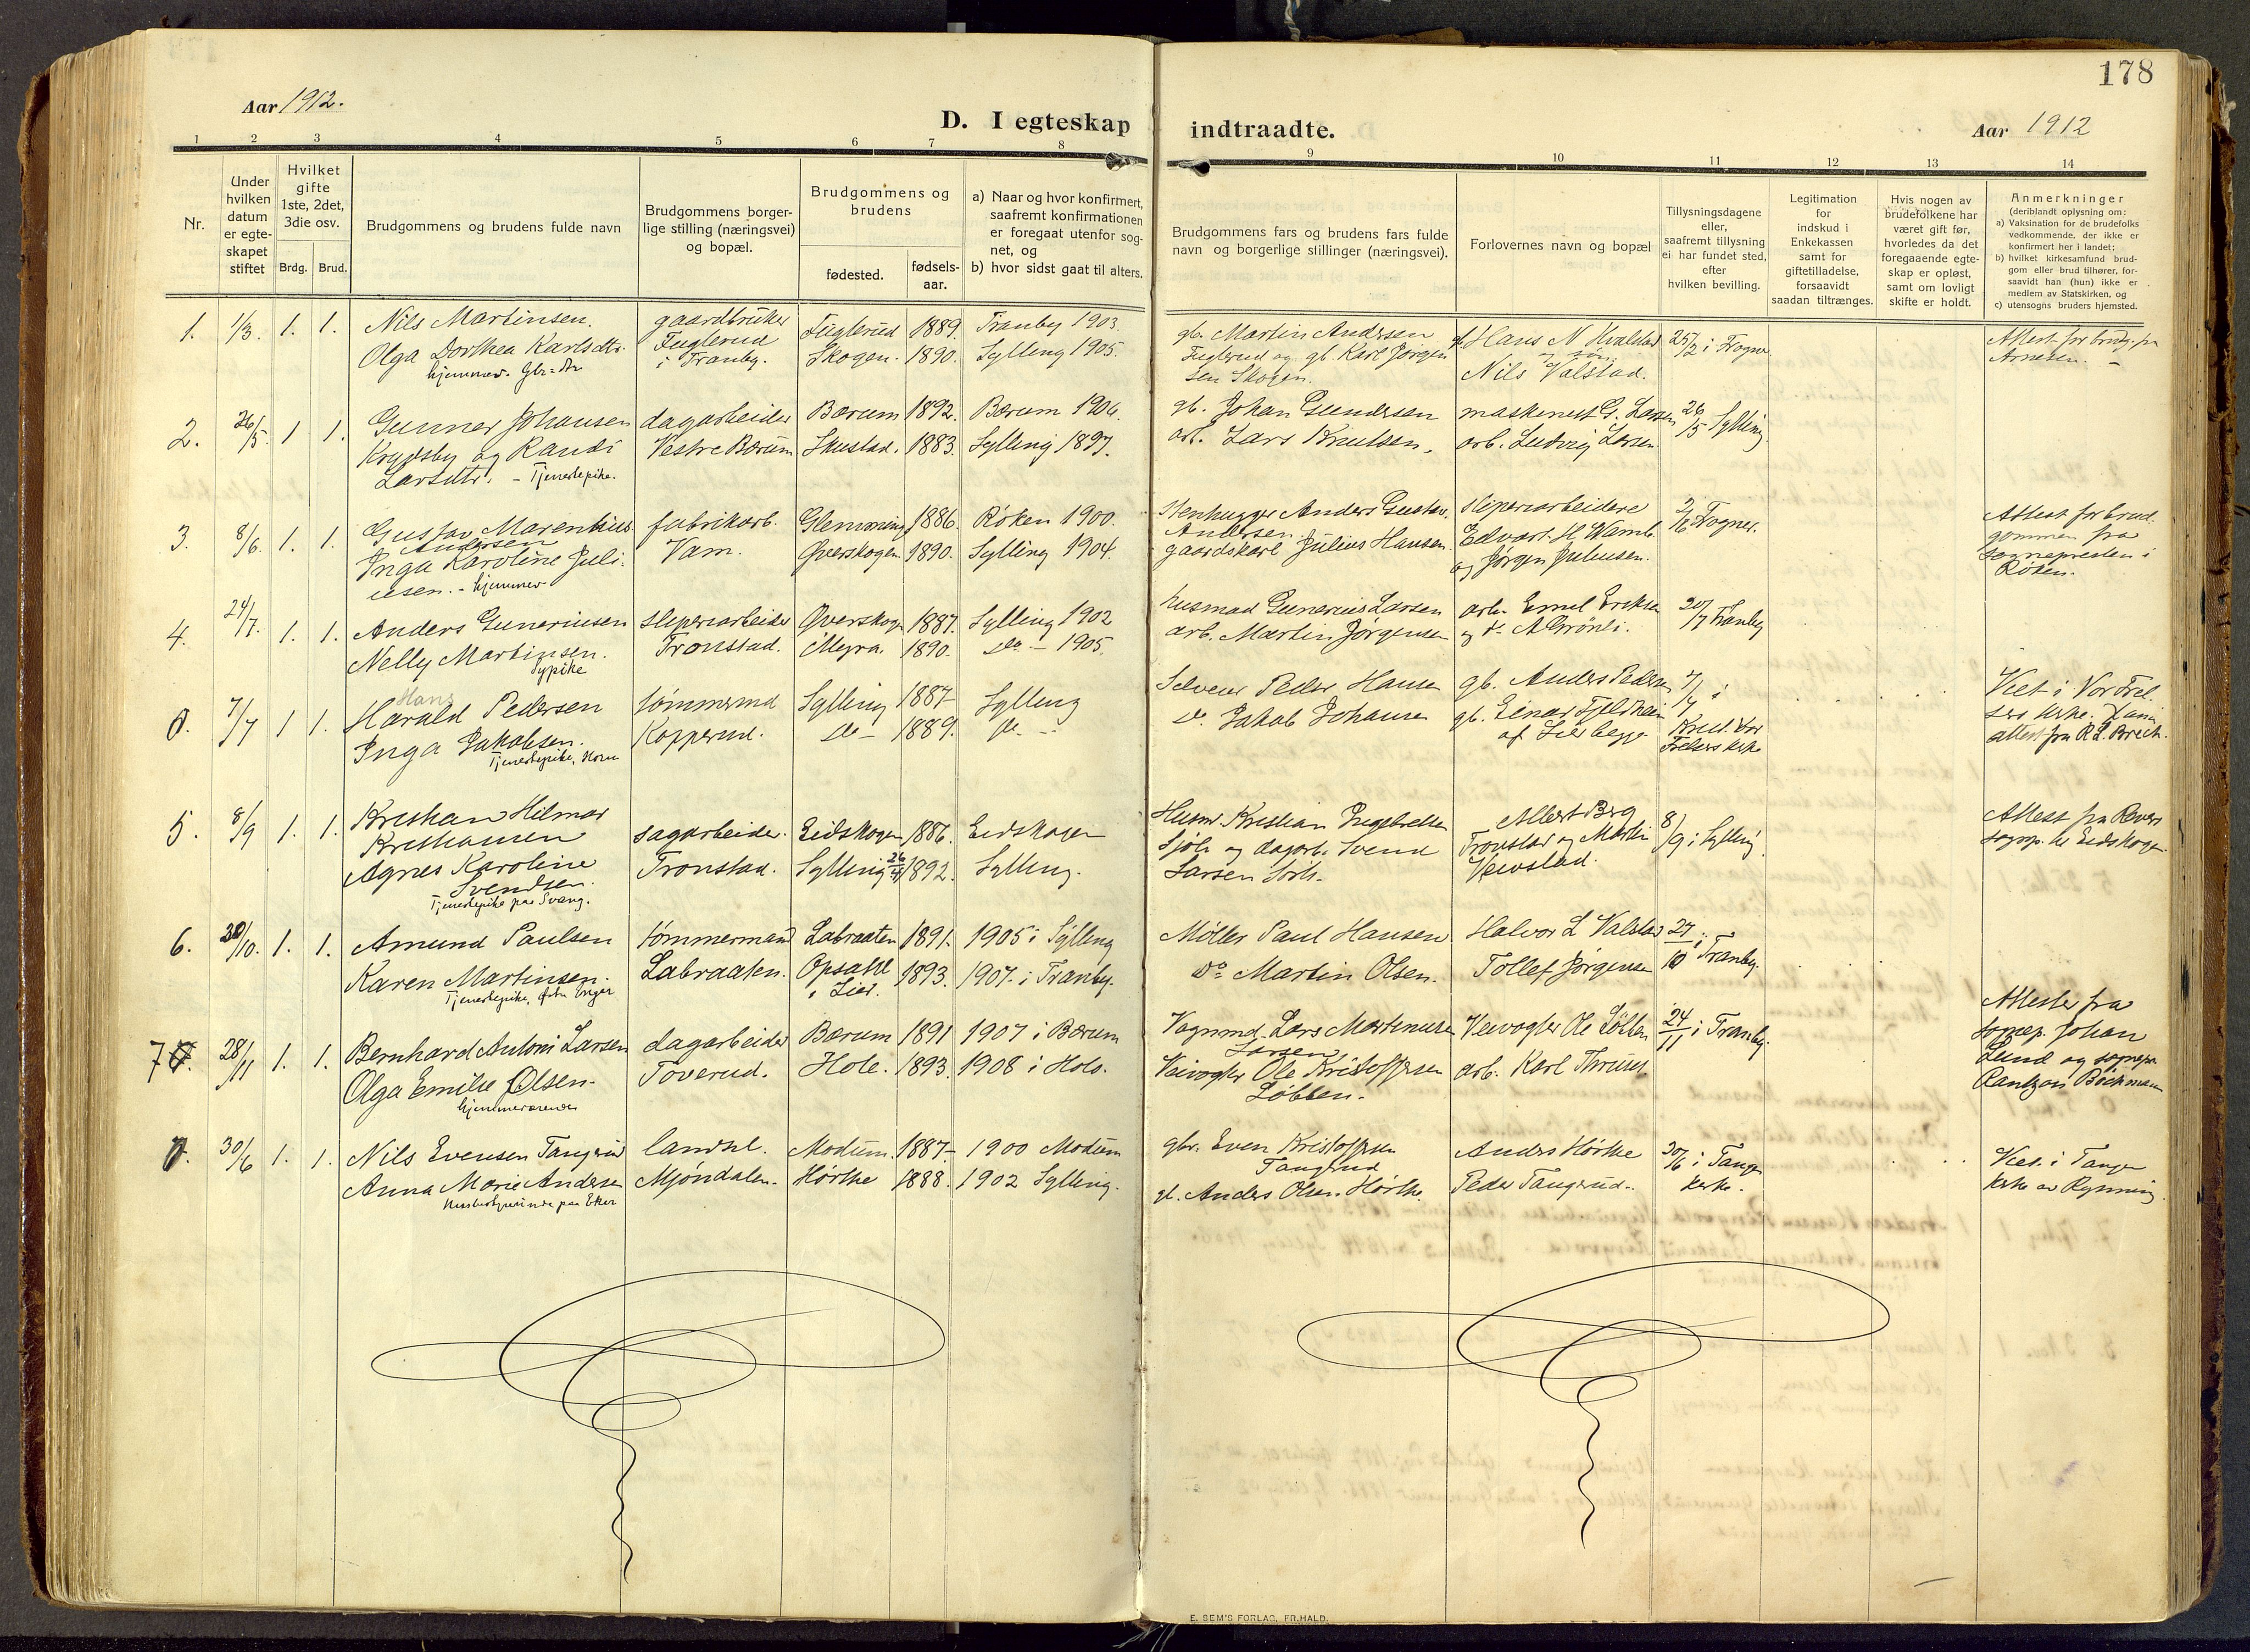 178
Aar 1912.
D. I egteskap indtraadte.
Aar 1912
1 2 3 4 5 6 7 8 9 10 11 12 13 14
Nr.
Under hvilken datum er egteskapet stiftet
Hvilket gifte 1ste, 2det, 3die osv.
Brdg. Brud.
Brudgommens og brudens fulde navn
Brudgommens borgerlige stilling (næringsvei) og bopæl.
Brudgommens og brudens
fødested.
fødselsaar.
a) Naar og hvor konfirmert, saafremt konfirmationen er foregaat utenfor sognet, og
b) hvor sidst gaat til alters.
Brudgommens fars og brudens fars fulde navn og borgerlige stillinger (næringsvei).
Forlovernes navn og bopæl
Tillysningsdagene eller, saafremt tillysning ei har fundet sted, efter hvilken bevilling.
Legitimation for indskud i Enkekassen samt for giftetilladelse, forsaavidt saadan tiltrænges.
Hvis nogen av brudefolkene har været gift før, hvorledes da det foregaaende egteskap er opløst, samt om lovligt skifte er holdt.
Anmerkninger
(deriblandt oplysning om:
a) Vaksination for de brudefolks vedkommende, der ikke er konfirmert her i landet;
b) hvilket kirkesamfund brudgom eller brud tilhører, forsaavidt han (hun) ikke er medlem av Statskirken, og
c) utensogns bruders hjemsted.
1. 1/3. 1. 1. Nils Martinsen. gaardbruker Fuglerud 1889. Tranby 1903. gb. Martin Andersen Hans N Hvalstad 25/2 i Frogner Attest for brudg. fra
Olga Dorthea Karlsdtr. Fuglerud Skogen. 1890. Sylling 1905. Fuglerud og gb. Karl Jørgen Arnesen.
hjemmev. Gbr-dtr i Tranby. sen Skogen. Nils Valstad.
2. 26/5. 1 1. Gunner Johansen dagarbeider Bærum 1892. Bærum 1906. gb. Johan Gundersen maskenist G. Larsen 26/5 Sylling.
og Randi Vestre Bærum Skustad. 1883. Sylling 1897. arb. Lars Knutsen. arb. Ludvig Larsen
Larsdtr. - Tjenestepike.
3. 8/6. 1. 1. Gustav Marenhius fabrikarb. Glemminge 1886. Røken 1900. Stenhugger Anders Gustav. sliperiarbeidere 2/6 Frogner. Attest for brud-
Andersen Andersen gommen fra
Inga Karoline Juli- Vam. Øverskogen 1890. Sylling 1904. gaardskarl Julius Hansen. Edvart H. Wamb. sognepresten i
usen. - hjemmev og Jørgen Juliussen. Røken.
4. 24/7. 1. 1. Anders Gunerinsen sliperiarbeider Øverskogen 1887. Sylling 1902 husmand Gunerius Larsen arb. Emil Eriksen 20/7 Tranby
Nelly Martinsen. Tronstad. Myra. 1890. do - 1905. arb. Martin Jørgensen og do A Grønli.
Sypike
0. 7/7 1 1. Hans
Harald Pedersen tømmermd Sylling 1887 Sylling Selveier Peder Hansen gb. Anders Pedersen 7/7 i Viet i Vor Frel-
Inga Jakobsen. Kopperud. do - 1889. do - do. Jakob Johansen gb. Einar Fjeldheim Krist. Vor sers kirke.
Tjenestepike, Horn af Lierbygge Frelsers kirke attest fra R. L. Brech.
5. 8/9 1. 1. Kristian Hilmar Husm. Kristian Engebretsen Albert Berg 8/9 i Sylling Attest fra Revers
Kristiansen sagarbeider. Eidskogen 1886. Eidskogen og dagarb. Svend Tronstad og Martin sogp. til Eidskogen
Agnes Karoline Tronstad. Sylling 26/4 1892. Sylling. Larsen Veivstad.
Svendsen.
Tjenestepike paa Svang.
6. 30/10. 1. 1. Amund Paulsen tømmermand Labraaten 1891. 1905 i Sylling Møller Paul Hansen Halvor L Valstad 27/10 i Tranby.
Karen Martinsen. Labraaten. Opsahl 1893. 1907 i Tranby. Do Martin Olsen. Tollef Jørgensen
Tjenestepike, østre Enger i Lier.
7. 28/11 1. 1. Bernhard Antoni Larsen dagarbeider Bærum 1891 1907 i Bærum Vognmd. Lars Martinusen Veivogter Ole Løbben 24/11 i Tranby. Attester fra
Larsen sognep. Johan
Olga Emilie Olsen. Toverud. Hole. 1893. 1908 i Hole. Veivogter Ole Kristoffersen arb. Karl Thrun Lund og sognepr.
hjemmeværende Løbben. Rantzau Bøckman
0. 30/6 1. 1. Nils Evensen Tangerud landhl. Modum. 1887 - 1900 Modum gbr. Even Kristoffersen Anders Hørthe 30/6 i Tangen Viet i Tangen
Tangerud
Anna Marie Andersen Mjøndalen. Hørthe 1888. 1902 Sylling. gb. Anders Olsen Hørthe. Peder Tangerud. kirke. kirke av Rynning.
Husbestyrerinde paa Eker
E. SEM'S FORLAG, FR.HALD.